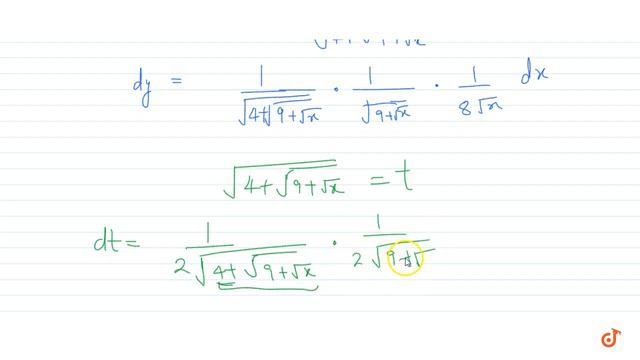 dy = 1/√(4+√(9+√x)) · 1/√(9+√x) · 1/(8√x) dx
√(4+√(9+√x)) = t
dt = 1/(2√(4+√(9+√x))) · 1/(2√(9+√